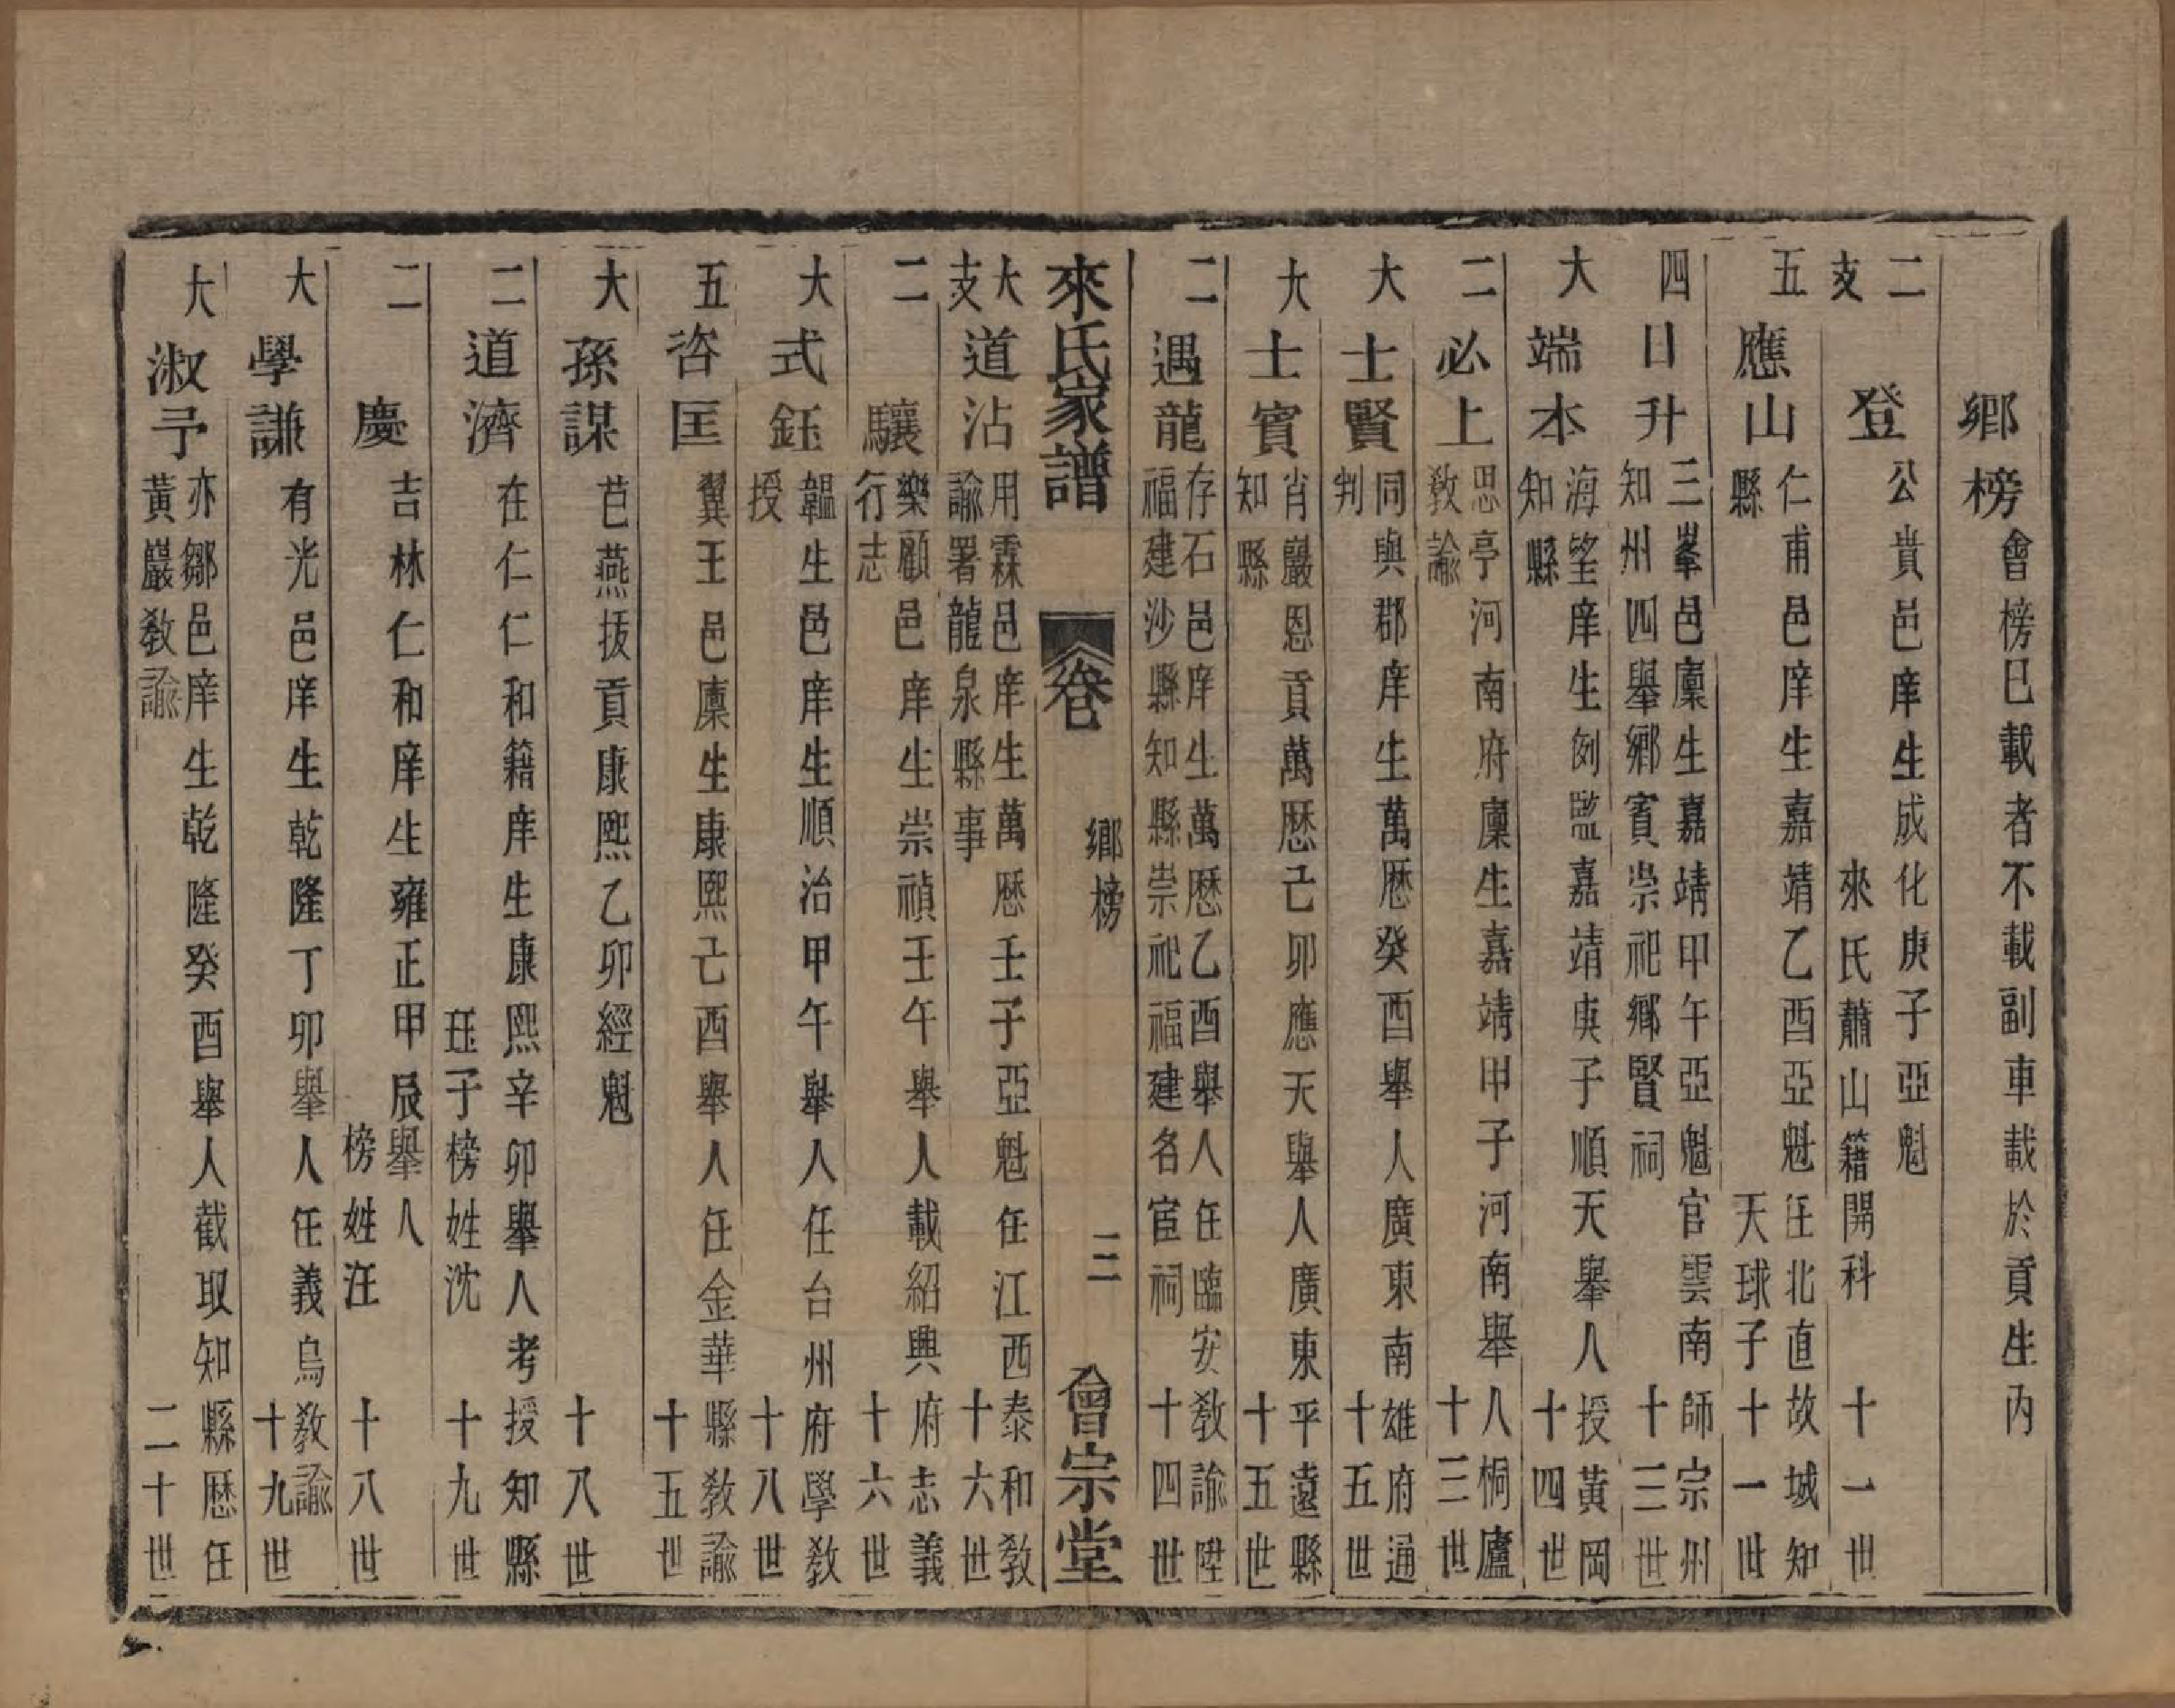 鄉榜 會榜巳載者不載副車載於貢生內
二支 登 公貴邑庠生成化庚子亞魁
來氏蕭山籍開科 十一世
五 應山 仁甫邑庠生嘉靖乙酉亞魁任北直故城知
縣 天球子 十一世
四 日升 三峯邑廩生嘉靖甲午亞魁官雲南師宗州
知州四舉鄉賓崇祀鄉賢祠 十三世
大 端本 海望庠生例監嘉靖庚子順天舉人授黃岡
知縣 十四世
二 必上 思亭河南府廩生嘉靖甲子河南舉人桐廬
教諭 十三世
大 士賢 同與郡庠生萬歷癸酉舉人廣東南雄府通
判 十五世
大 士賓 肖巖恩貢萬歷己卯應天舉人廣東平遠縣
知縣 十五世
二 遇龍 存石邑庠生萬歷乙酉舉人任臨安教諭陞
福建沙縣知縣崇祀福建名宦祠 十四世
來氏家譜 卷 鄉榜 三 會宗堂
大支 道沾 用霖邑庠生萬歷壬子亞魁任江西泰和教
諭署龍泉縣事 十六世
二 驤 樂顧邑庠生崇禎壬午舉人載紹興府志義
行志 十六世
大 式鈺 韞生邑庠生順治甲午舉人任台州府學教
授 十八世
五 咨匡 翼王邑廩生康熙己酉舉人任金華縣教諭
十五世
大 孫謀 芑燕拔貢康熙乙卯經魁
十八世
二 道濟 在仁仁和籍庠生康熙辛卯舉人考授知縣
珏子榜姓沈 十九世
二 慶 吉林仁和庠生雍正甲辰舉人
榜姓汪 十八世
大 學謙 有光邑庠生乾隆丁卯舉人任義烏教諭
十九世
大 淑予 亦鄒邑庠生乾隆癸酉舉人截取知縣歷任
黃巖教諭 二十世